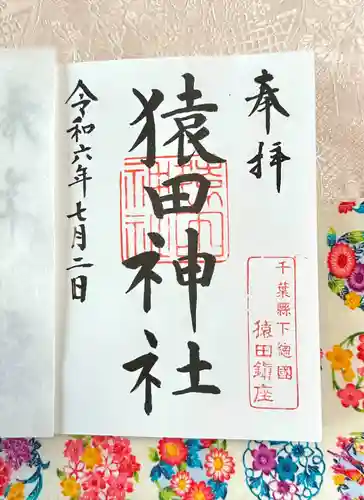 奉拝
千葉縣下總國
猿田鎮座
猿田神社
猿田神社
令和六年七月二日